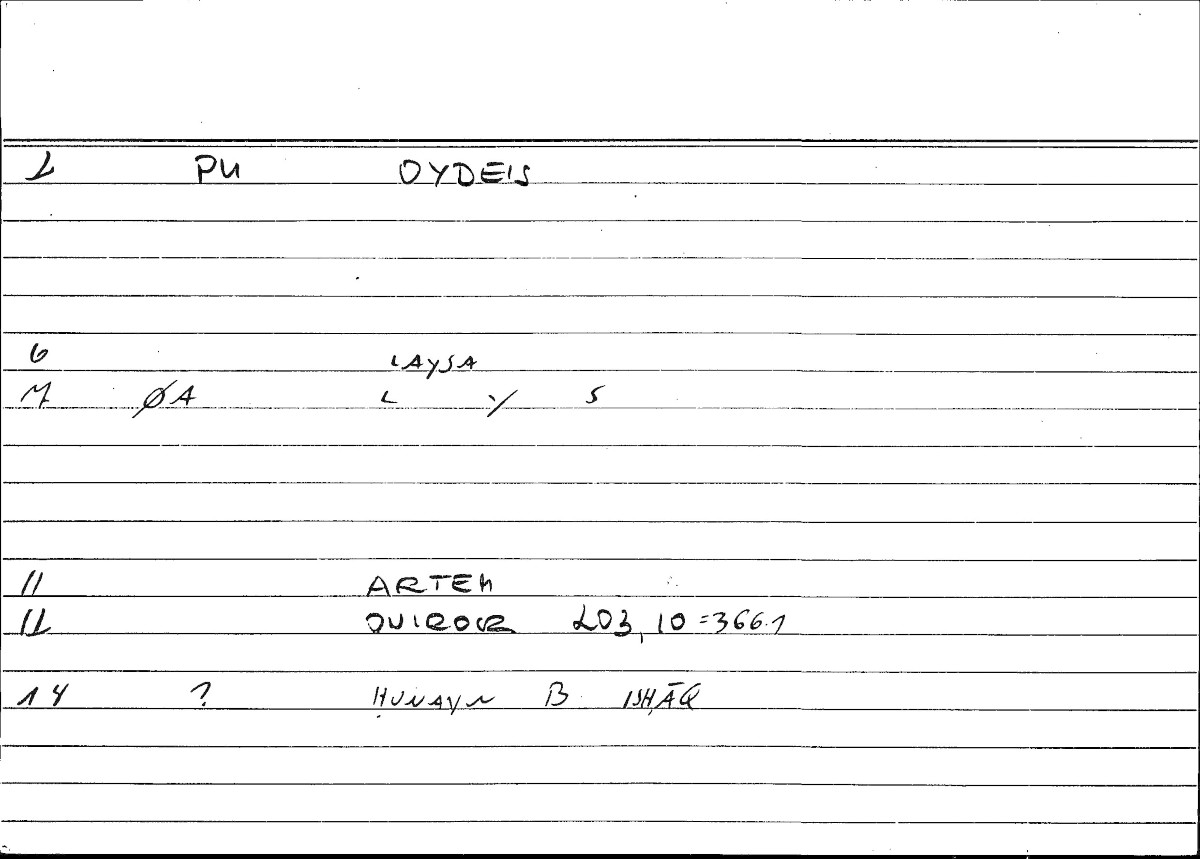 2 PU OYDEIS
6 LAYSA
7 ØA L Y S
11 ARTEM
12 ONIROCR 203,10=366.1
14 ? ḤUNAYN B ISḤĀQ